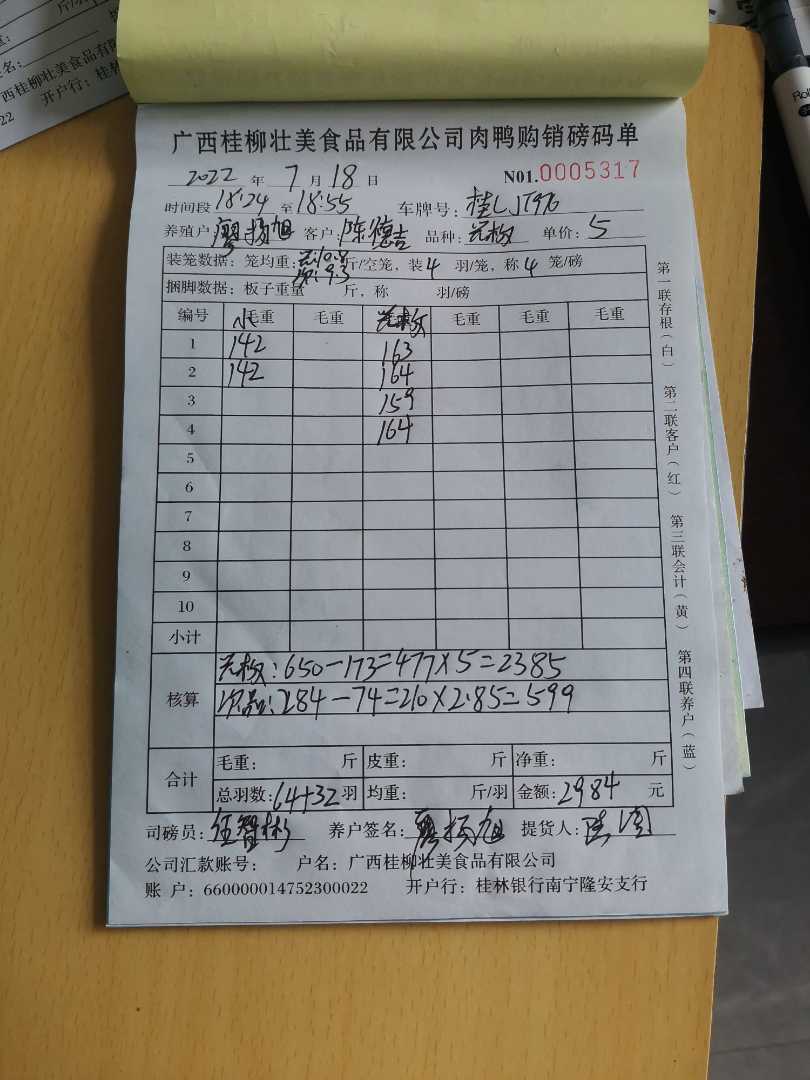 西桂柳壮美食品有限
开户行：桂林
22
广西桂柳壮美食品有限公司肉鸭购销磅码单
2022 年 7 月 18 日 N01.0005317
时间段 18:24 至 18:55 车牌号：桂LJT976
养殖户 廖扬旭 客户：陈德吉 品种： 单价：5
装笼数据：笼均重： 10.8 次:9.3 斤/空笼，装 4 羽/笼，称 4 笼/磅
捆脚数据：板子重量 斤，称 羽/磅
编号 小 毛重 毛重 毛重 毛重 毛重
1 142 163
2 142 164
3 159
4 164
5
6
7
8
9
10
小计
核算 : 650-173=477×5=2385
次品: 284-74=210×2.85=599
合计 毛重： 斤 皮重： 斤 净重： 斤
总羽数：64+32 羽 均重： 斤/羽 金额：2984 元
司磅员：伍智彬 养户签名：廖扬旭 提货人：
公司汇款账号： 户名：广西桂柳壮美食品有限公司
账 户：660000014752300022 开户行：桂林银行南宁隆安支行
第一联存根（白） 第二联客户（红） 第三联会计（黄） 第四联养户（蓝）